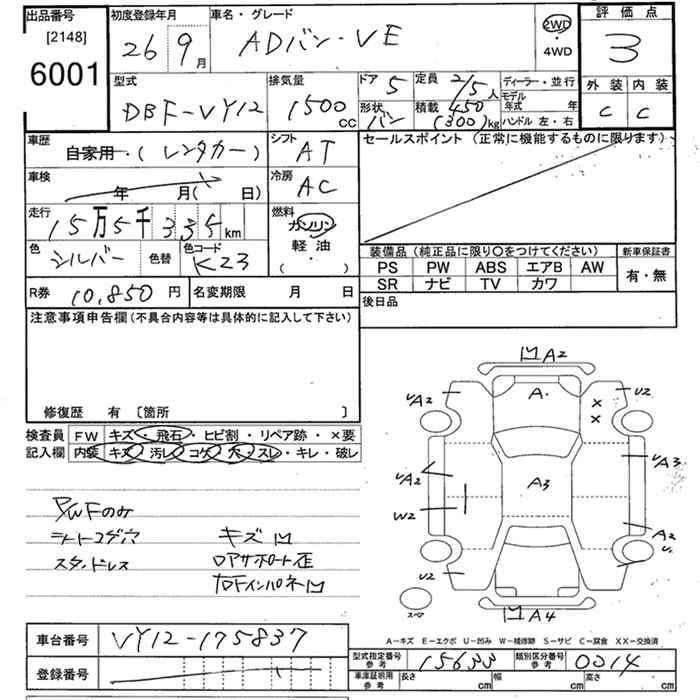 出品番号 初度登録年月 車名・グレード 2WD 評価点
[2148] 26 9月 ADバン・VE ・ 3
6001 4WD
型式 排気量 ドア 5 定員 2/5人 ディーラー・並行 外装 内装
DBF-VY12 1500cc 形状 バン 積載 450(300)kg モデル年式 年 C C
ハンドル 左・右
車歴 シフト セールスポイント (正常に機能するものに限ります)
自家用・(レンタカー) AT
車検 冷房
年 月( 日) AC
走行 燃料
15万5千335km ガソリン
色 シルバー 色替 色コード K23 軽油
(・)
装備品 (純正品に限り〇をつけてください) 新車保証書
PS PW ABS エアB AW 有・無
SR ナビ TV カワ
R券 10,850円 名変期限 月 日 後日品
注意事項申告欄(不具合内容等は具体的に記入して下さい)
修復歴 有 〔箇所 〕
検査員 FW キズ・飛石・ヒビ割・リペア跡・×要
記入欄 内装 キズ・汚レ・コゲ・穴・スレ・キレ・破レ
P/WFのみ
シートコゲ穴 キズ凹
スタンドレス
A2
A2 A・ U2
× ×
A2 A3 A3
W2 A2
U2
スペア A4
A-キズ E-エクボ U-凹み W-補修跡 S-サビ C-腐食 XX-交換済
車台番号 VY12-175837
登録番号
型式指定番号 参考 15633 類別区分番号 参考 0014
車庫証明用 参考 長さ cm 幅 cm 高さ cm